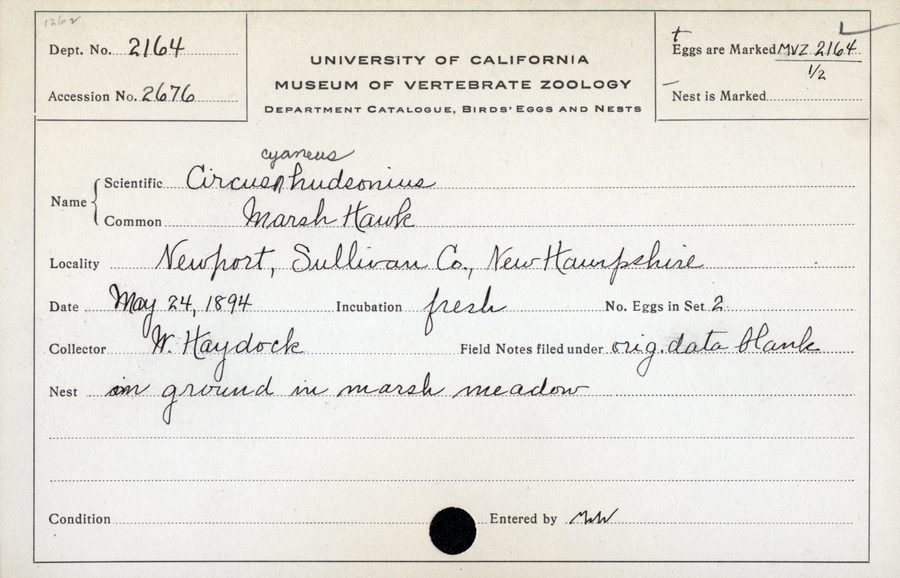 1262
Dept. No. 2164
Accession No. 2676
UNIVERSITY OF CALIFORNIA
MUSEUM OF VERTEBRATE ZOOLOGY
DEPARTMENT CATALOGUE, BIRDS' EGGS AND NESTS
t L
Eggs are Marked MVZ 2164
1/2
Nest is Marked
cyaneus
Name { Scientific Circus hudsonius
Common Marsh Hawk
Locality Newport, Sullivan Co., New Hampshire
Date May 24, 1894 Incubation fresh No. Eggs in Set 2
Collector W. Haydock Field Notes filed under orig. data blank
Nest on ground in marsh meadow
Condition Entered by